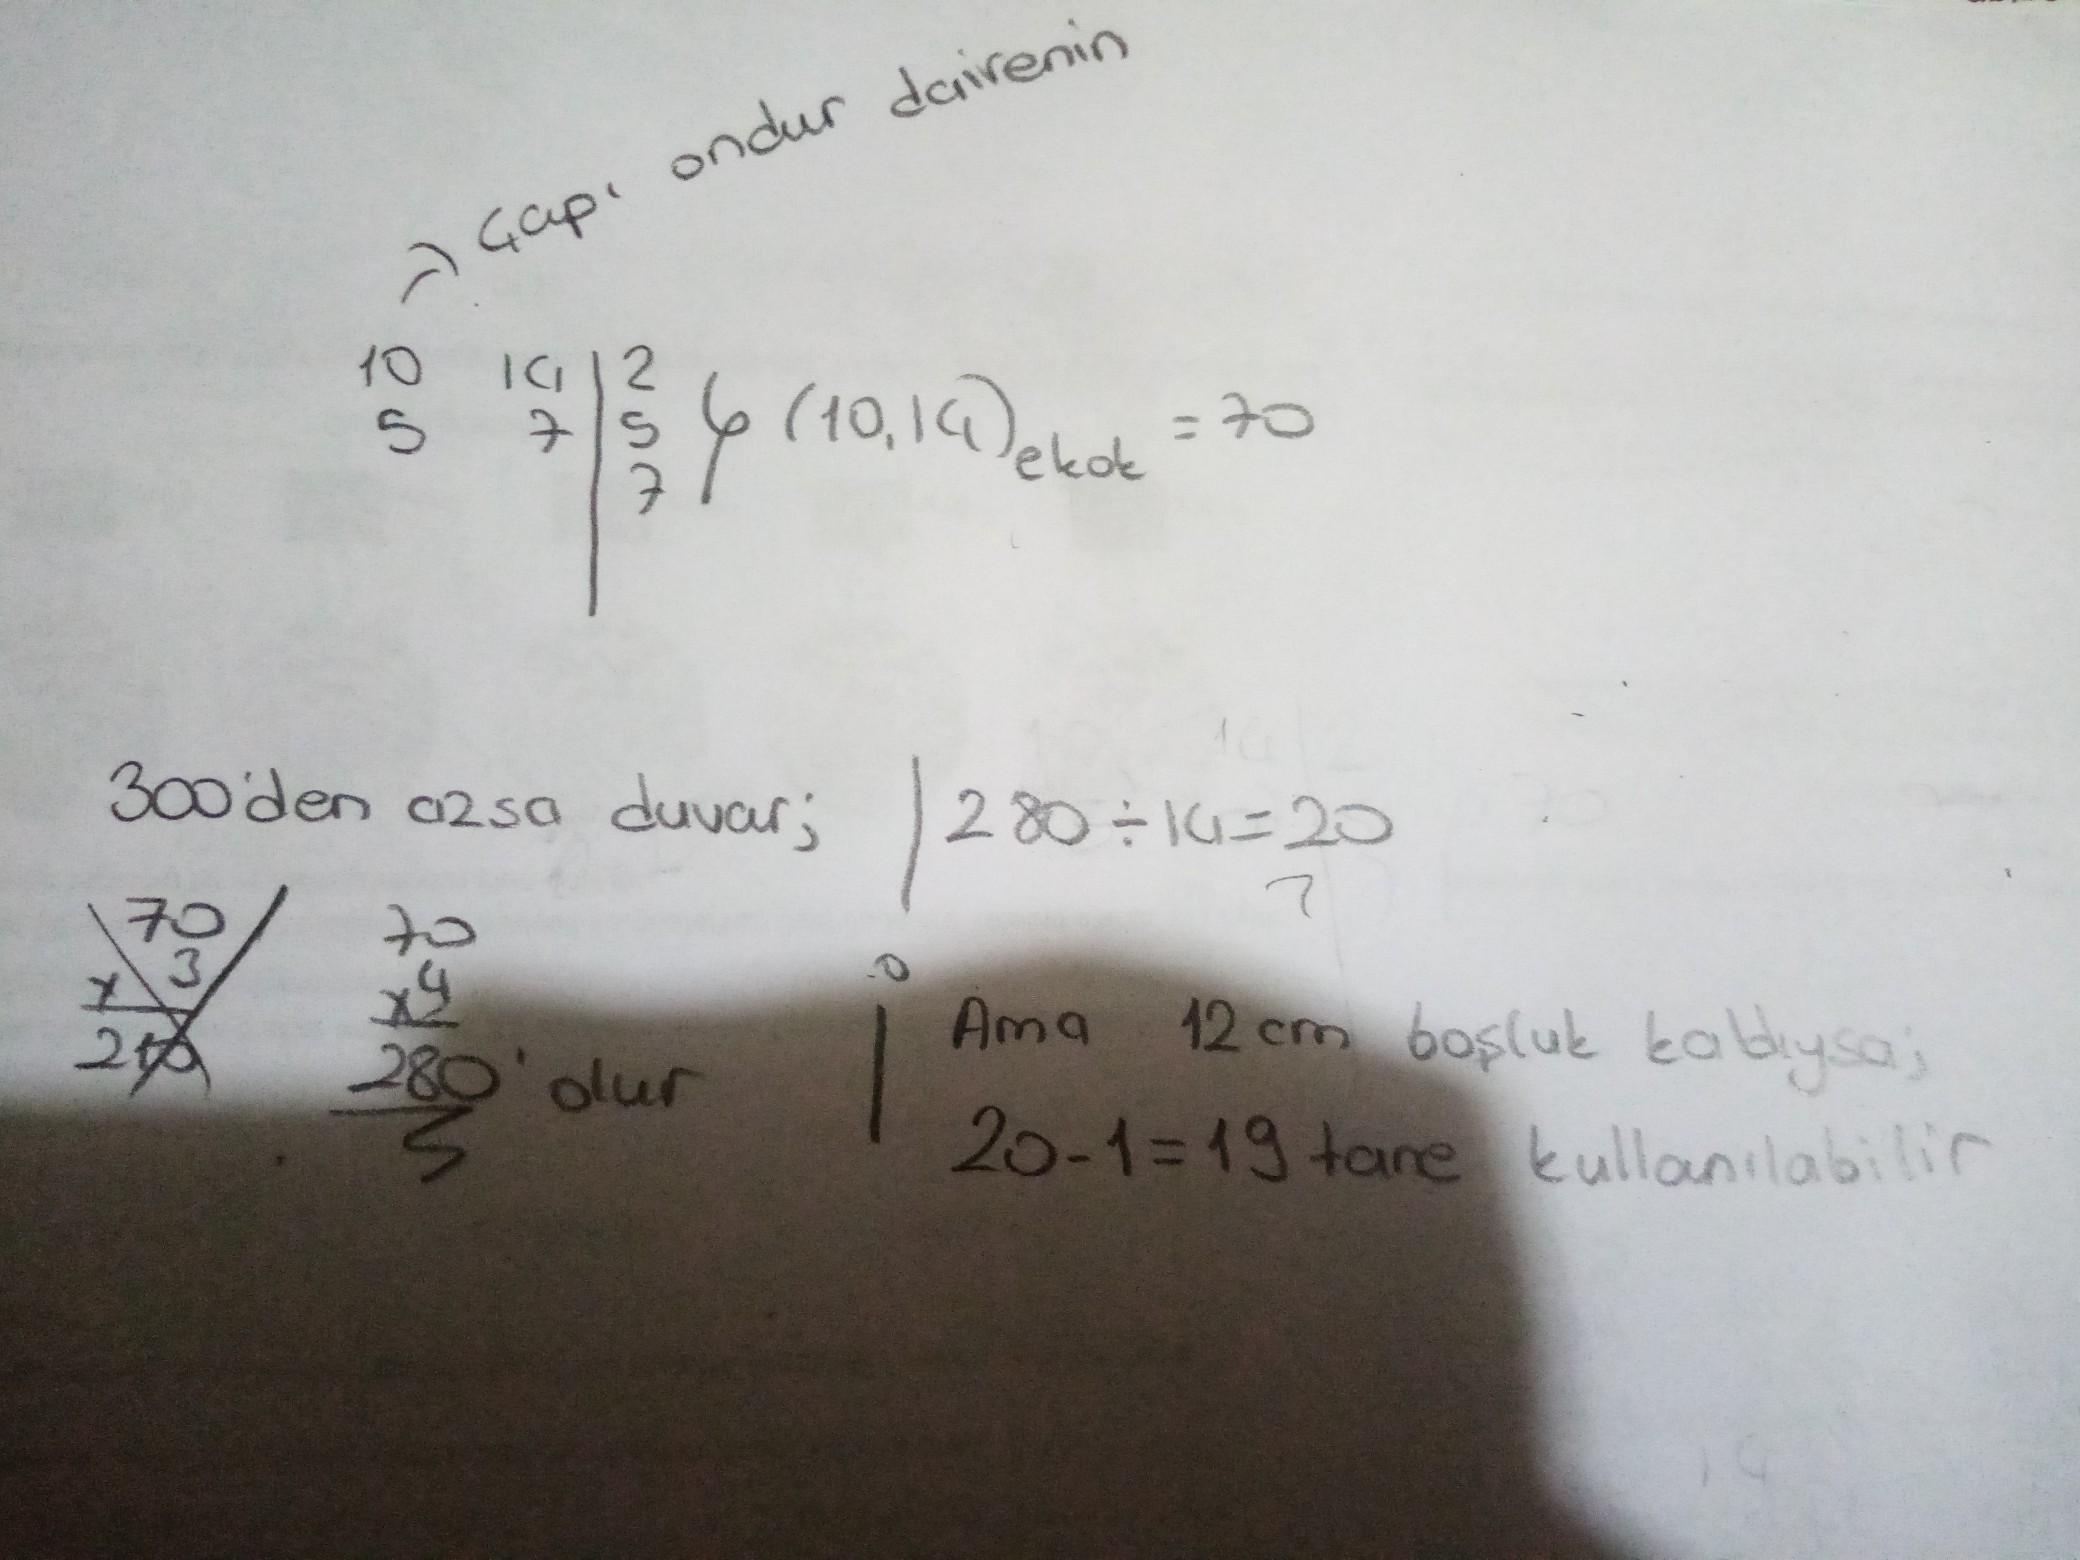 Çapı ondur dairenin
10 14 | 2
5 7 | 5
7
(10,14)ekok = 70
300'den azsa duvar;
70
x 3
210
70
x4
280 olur
280 ÷ 14 = 20
Ama 12 cm boşluk kaldıysa;
20-1=19 tane kullanılabilir